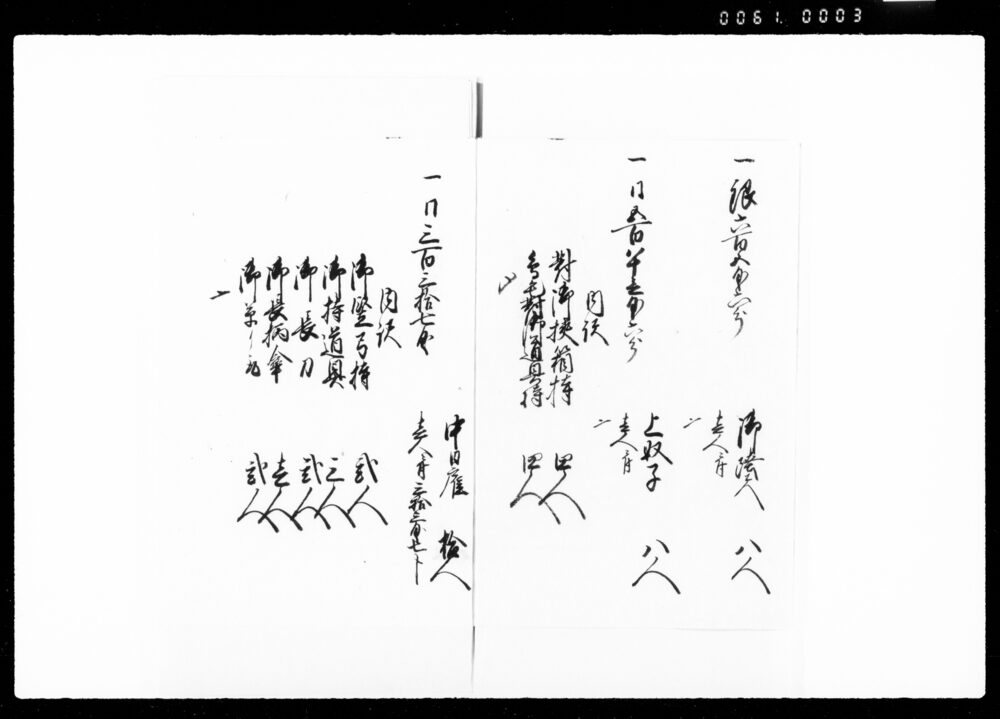 0061.0003
一 銀六百
御陸人 八人
壱人ニ付
一 同五百八十
上奴子 八人
壱人ニ付
内訳
對御挟箱持 四人
對御道具持 四人
〆
一 同三百三拾七匁
中日雇 拾人
壱人ニ付三拾三匁七分
内訳
御竪弓持 弐人
御持道具 三人
御長刀 弐人
御長柄傘 壱人
御草り取 弐人